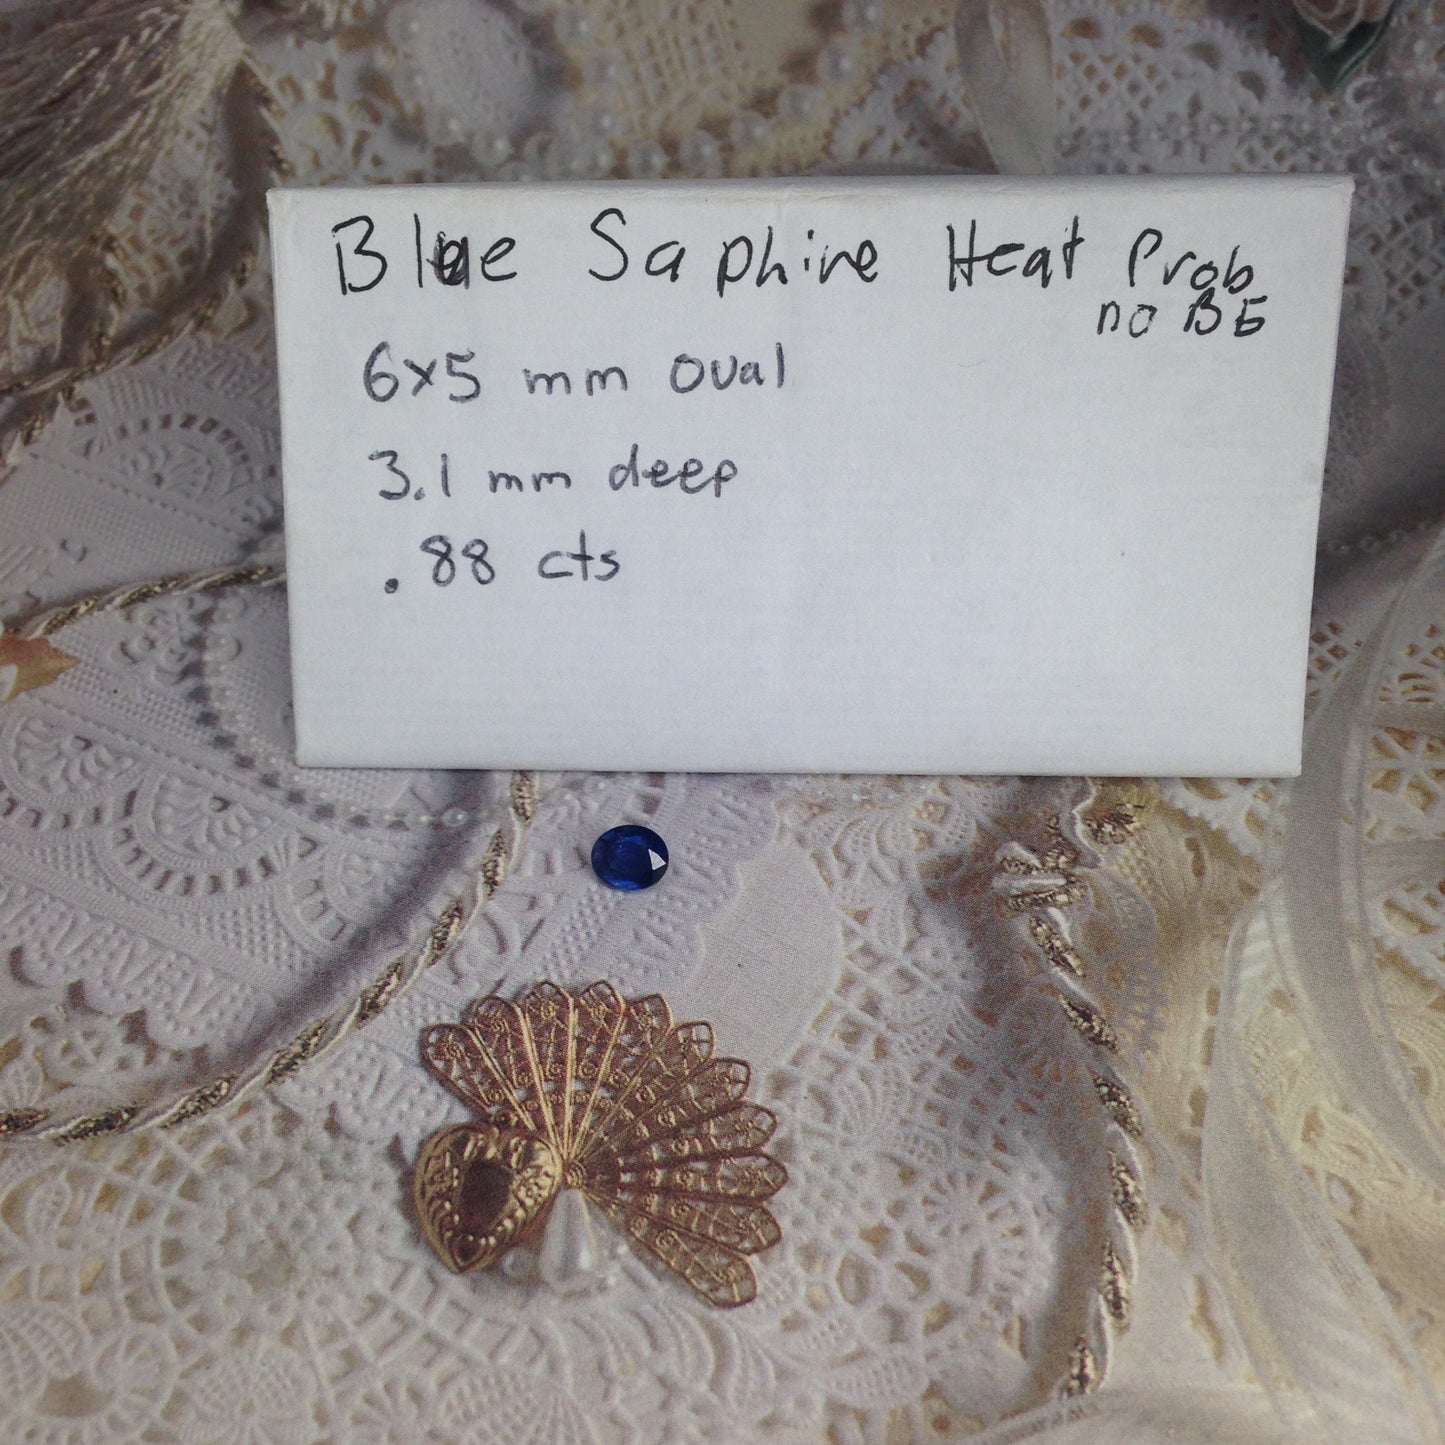 Blue Saphire Heat Prob
no BE
6x5 mm oval
3.1 mm deep
.88 cts